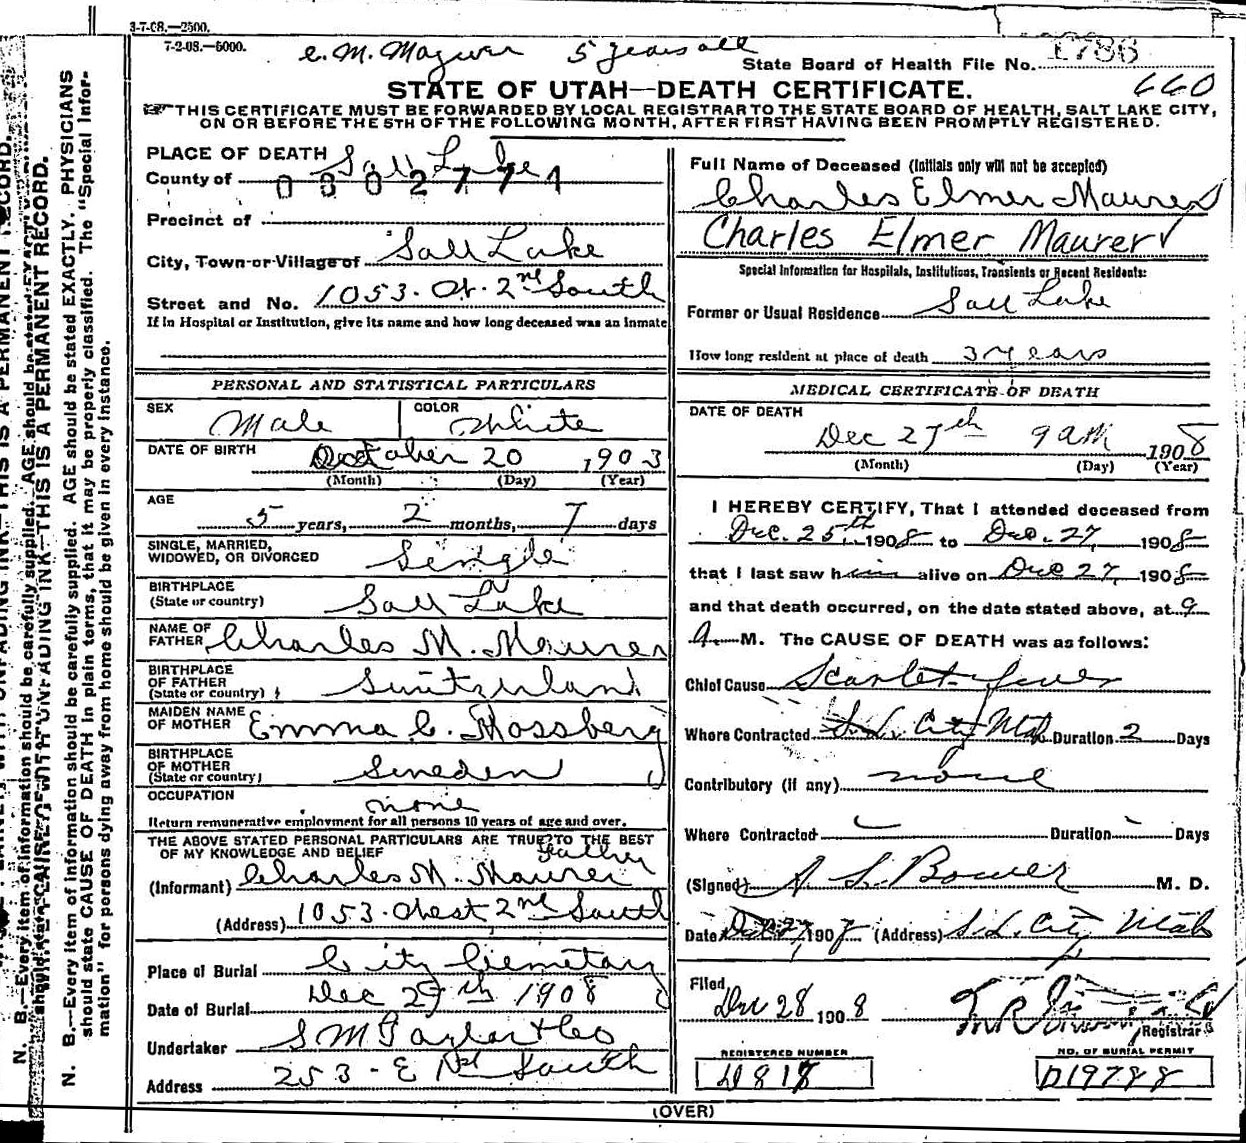 3-7-08.—2500.
7-2-08.—5000.
5 years old
State Board of Health File No. 1786
660
STATE OF UTAH—DEATH CERTIFICATE.
THIS CERTIFICATE MUST BE FORWARDED BY LOCAL REGISTRAR TO THE STATE BOARD OF HEALTH, SALT LAKE CITY,
ON OR BEFORE THE 5TH OF THE FOLLOWING MONTH, AFTER FIRST HAVING BEEN PROMPTLY REGISTERED.
PLACE OF DEATH
County of Salt Lake
0002771
Precinct of
City, Town or Village of Salt Lake
Street and No. 1053. W. 2nd South
If in Hospital or Institution, give its name and how long deceased was an inmate
PERSONAL AND STATISTICAL PARTICULARS
SEX Male COLOR White
DATE OF BIRTH October 20 1903
(Month) (Day) (Year)
AGE
5 years, 2 months, 7 days
SINGLE, MARRIED,
WIDOWED, OR DIVORCED Single
BIRTHPLACE
(State or country) Salt Lake
NAME OF
FATHER Charles M. Maurer
BIRTHPLACE
OF FATHER
(State or country) Switzerland
MAIDEN NAME
OF MOTHER Emma C. Mossberg
BIRTHPLACE
OF MOTHER
(State or country) Sweden
OCCUPATION none
Return remunerative employment for all persons 10 years of age and over.
THE ABOVE STATED PERSONAL PARTICULARS ARE TRUE TO THE BEST
OF MY KNOWLEDGE AND BELIEF Father
(Informant) Charles M. Maurer
(Address) 1053. West 2nd South
Place of Burial City Cemetary
Date of Burial Dec 29th 1908
Undertaker S M Taylor & Co
Address 253 - E 1st South
Full Name of Deceased (Initials only will not be accepted)
Charles Elmer Maurer
Charles Elmer Maurer
Special Information for Hospitals, Institutions, Transients or Recent Residents:
Former or Usual Residence Salt Lake
How long resident at place of death 3 years
MEDICAL CERTIFICATE OF DEATH
DATE OF DEATH
Dec 27th 9 am 1908
(Month) (Day) (Year)
I HEREBY CERTIFY, That I attended deceased from
Dec. 25th 1908 to Dec. 27, 1908
that I last saw him alive on Dec 27, 1908
and that death occurred, on the date stated above, at 9
A. M. The CAUSE OF DEATH was as follows:
Chief Cause Scarlet fever
Where Contracted S. L. City Utah Duration 2 Days
Contributory (if any) none
Where Contracted Duration Days
(Signed) M. D.
Date Dec 27, 190 (Address) S. L. City Utah
Filed
Dec 28 1908
Registrar
REGISTERED NUMBER
NO. OF BURIAL PERMIT
D19788
(OVER)
N. B.—Every item of information should be carefully supplied. AGE should be stated EXACTLY. PHYSICIANS
should state CAUSE OF DEATH in plain terms, that it may be properly classified. The "Special Infor-
mation" for persons dying away from home should be given in every instance.